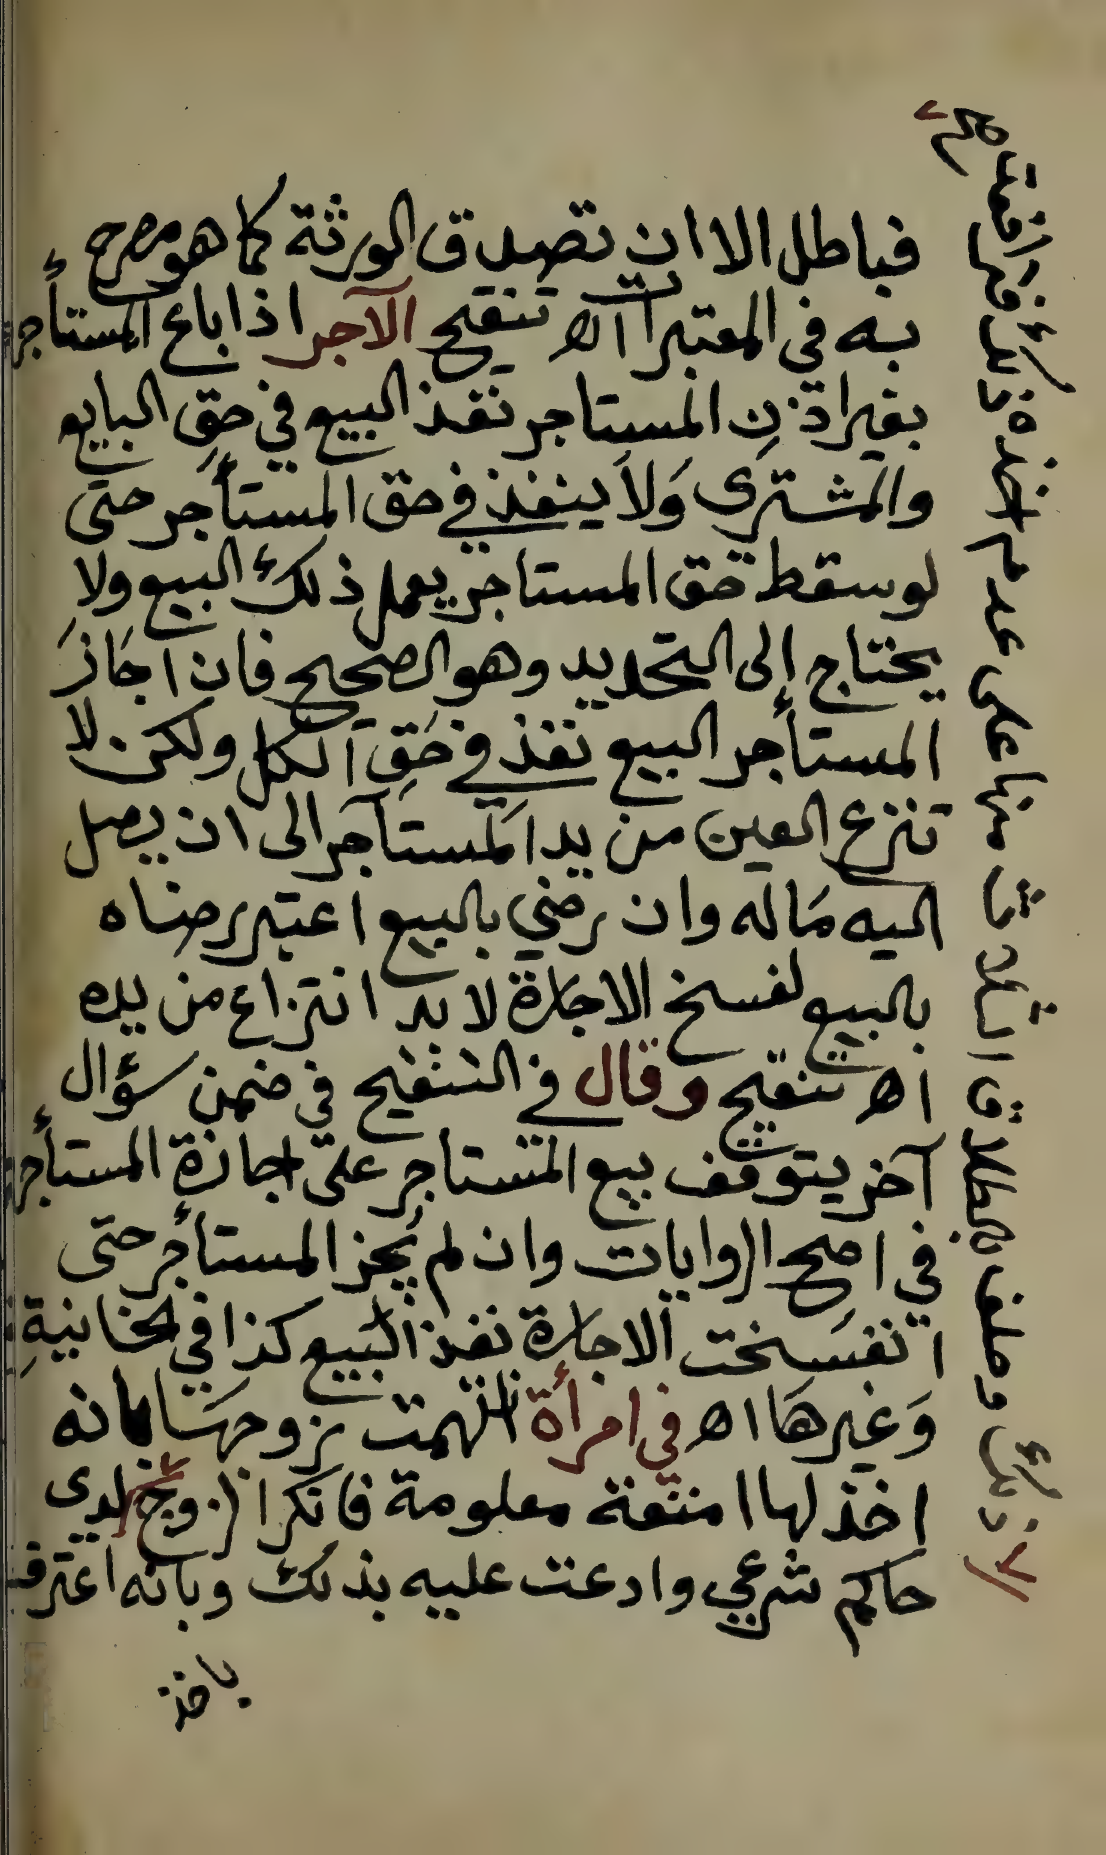 فباطل الا ان تصدق الورثة كما هو مصرح
به فى المعتبرات اه تنقيح الآجر اذا باع المستأجر
بغير اذن المستاجر نفذ البيع في حق البايع
والمشتري ولا ينفذ في حق المستأجر حتى
لو سقط حق المستاجر يعمل ذلك البيع ولا
يحتاج إلى التجديد وهو الصحيح فان اجاز
المستأجر البيع نفذ في حق الكل ولكن لا
تنزع العين من يد المستأجر الى ان يصل
اليه ماله وان رضي بالبيع اعتبر رضاه
بالبيع لفسخ الاجارة لا بد انتزاع من يده
اه تنقيح وقال في التنقيح في ضمن سؤال
آخر يتوقف بيع المستاجر على اجازة المستأجر
في اصح الروايات وان لم يجز المستأجر حتى
انفسخت الاجارة نفذ البيع كذا في الخانية
وغيرها اه في امرأة اتهمت زوجها بانه
اخذ لها امتعة معلومة فانكر الزوج لدى
حاكم شرعي وادعت عليه بذلك وبانه اعترف
باخذ
ذلك وحلف بالطلاق الثلاث منها على عدم اخذه ذلك فرافعته
صح